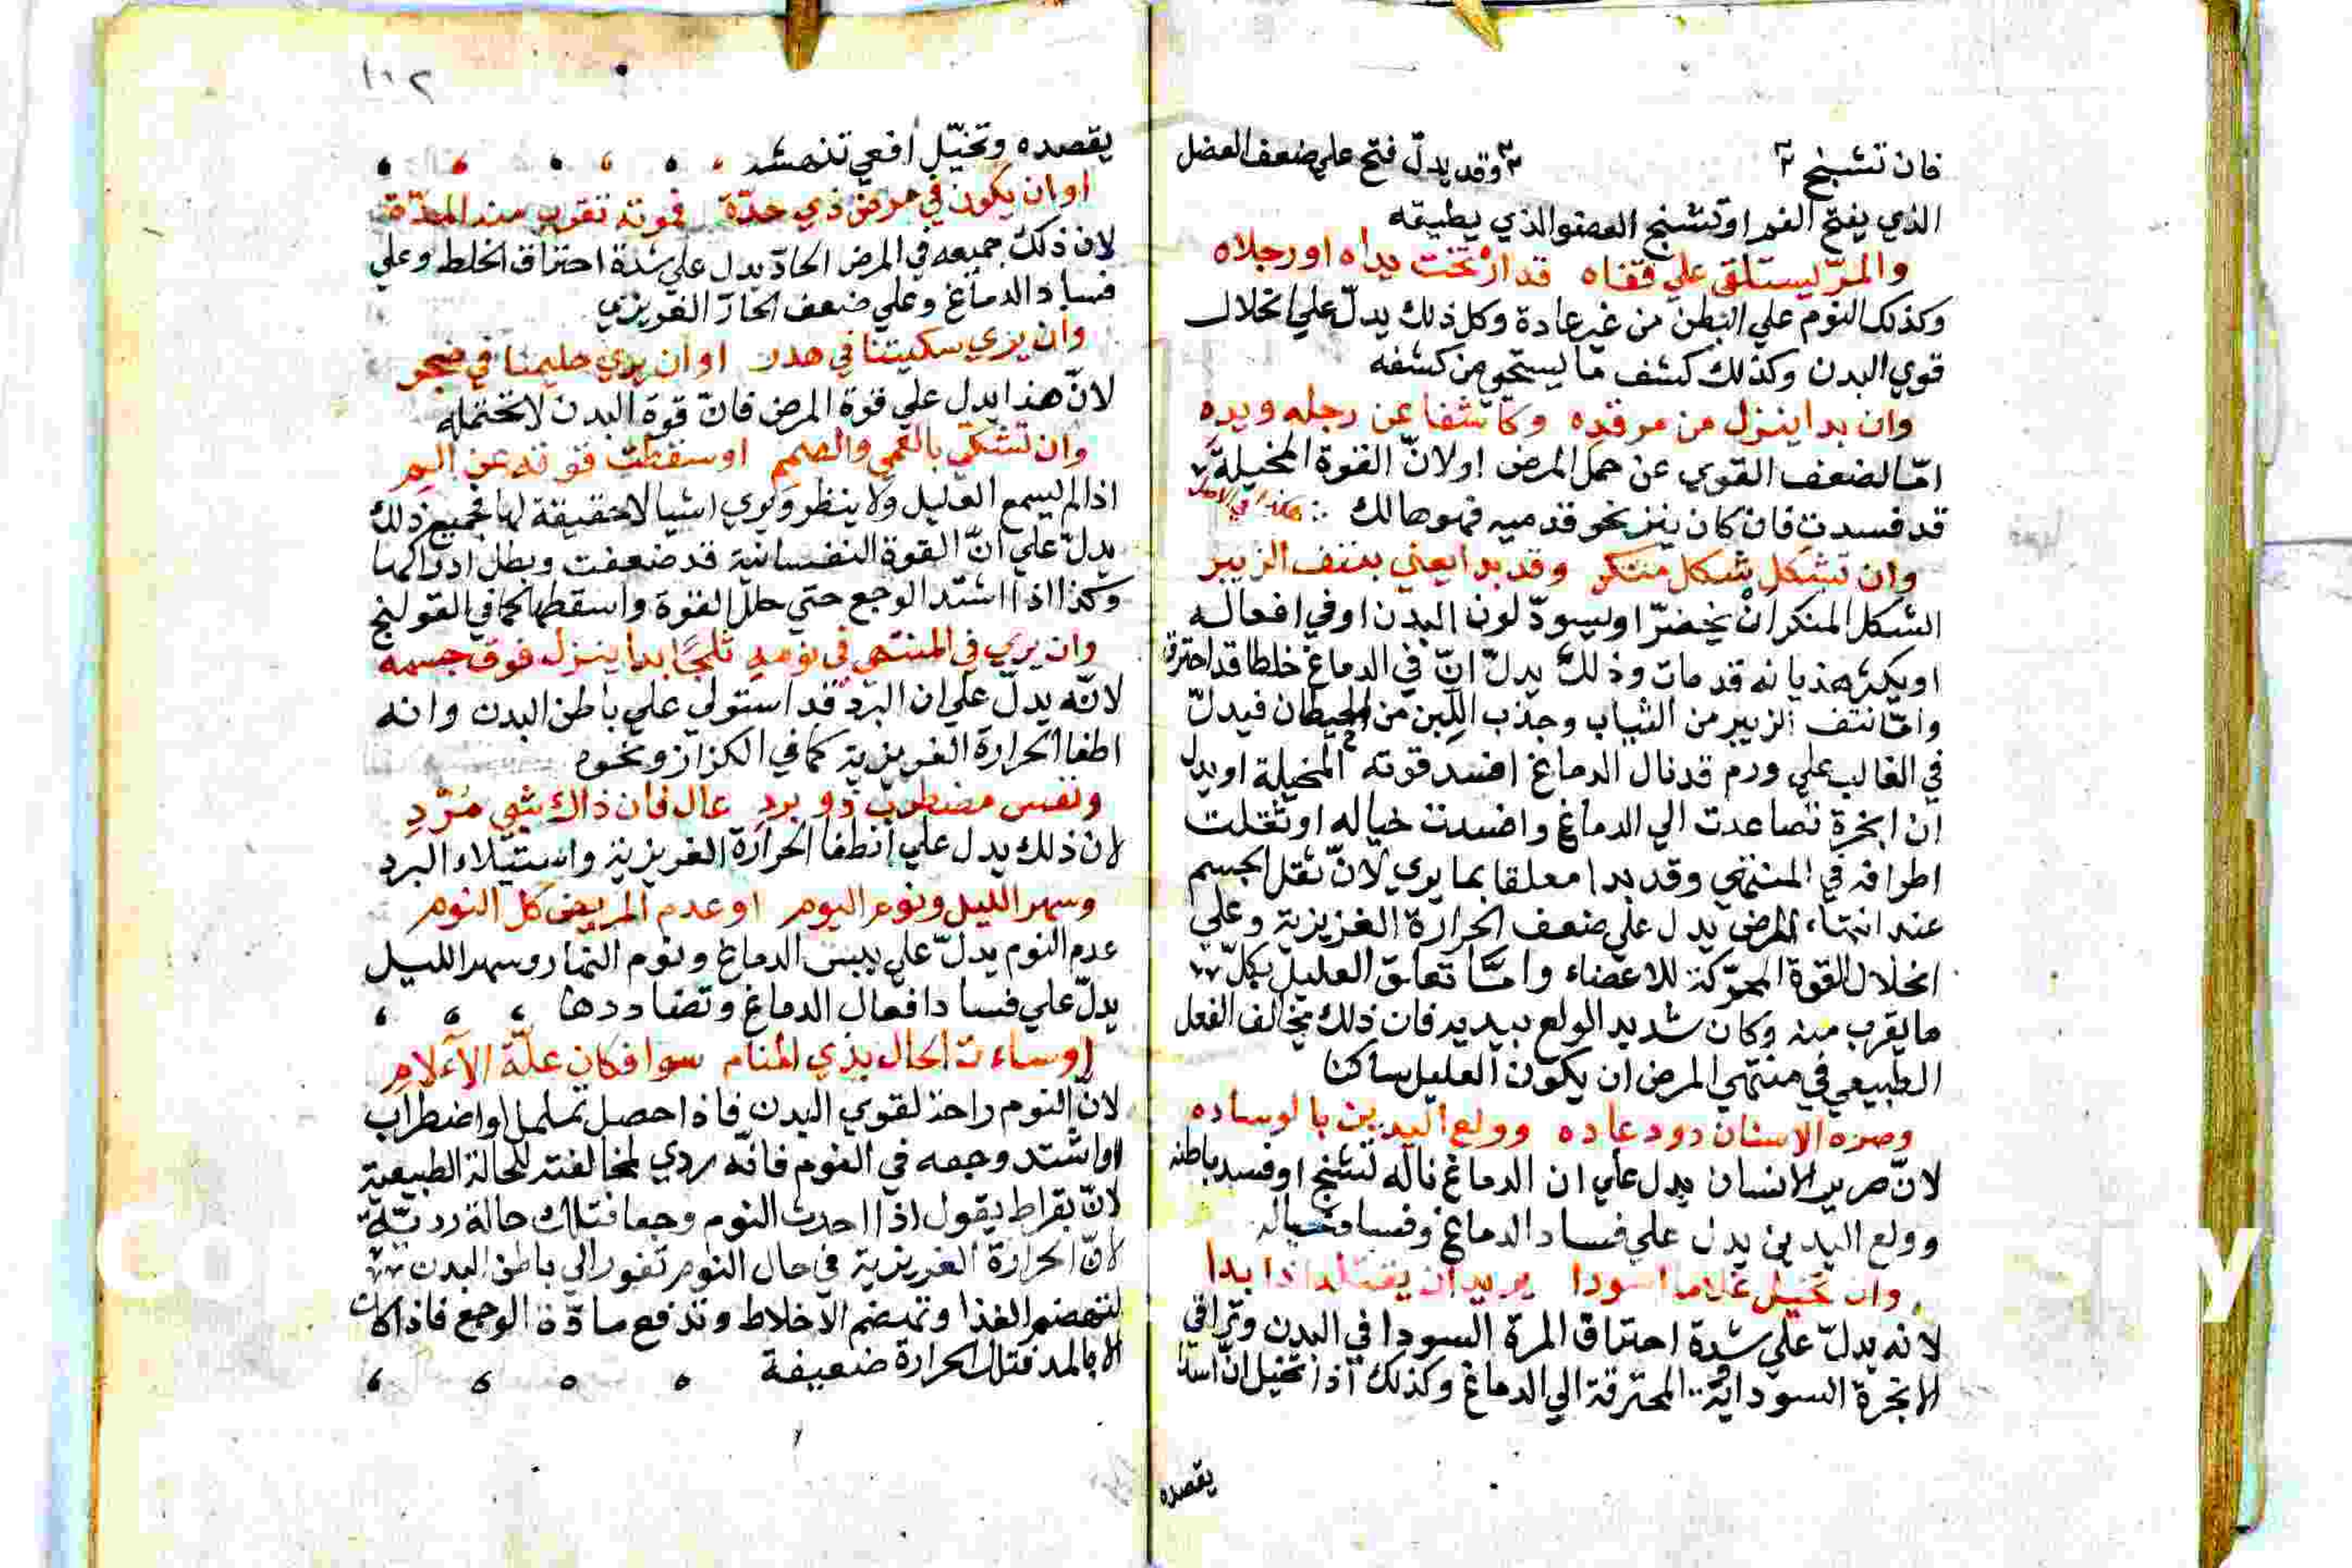 فان تشنج ٣ ٣ وقد يدلّ فتح علي ضعف العضل
الذي يفتح الفم او تشنج العضو الذي يطبقه
والمرّ يستلقي علي قفاه قد ارتخت يداه او رجلاه
وكذلك النوم علي البطن من غير عادة وكل ذلك يدلّ علي انحلال
قوي البدن وكذلك كشف ما يستحي من كشفه
وان بدا ينزل من مرقده وكاشفا عن رجله ويده
امّا لضعف القوي عن حمل المرض او لانّ القوة المخيلة
قد فسدت فان كان ينزنحو قدميه فهو هالك هكذا في الاصل
وان تشكل شكل منكر وقد بدا يعني بنتف الزيبر
الشكل المنكر انْ يخضرّ او يسودّ لون البدن او في افعاله
او يكثر هذيانه قد مات وذلك يدلّ انّ في الدماغ خلطا قد احترق
وامّا نتف الزيبر من الثياب وجذب اللبن من الحيطان فيدلّ
في الغالب علي ورم قد نال الدماغ افسد قوته المخيلة او يدل
ان ابخرة تصاعدت الي الدماغ وافسدت خياله او ثقلت
اطرافه في المنتهي وقد بدا معلقا بما يري لانّ ثقل الجسم
عند انتهاء المرض يدل علي ضعف الحرارة الغريزية وعلي
انحلال القوة المحرّكة للاعضاء وامّا تعلق العليل بكلّ
ما يقرب منه وكان شديد الولع بيديه فان ذلك مخالف الفعل
الطبيعي في منتهي المرض ان يكون العليل ساكنا
وصره الاسنان دون عاده وولع اليدين بالوساده
لانّ صرير الاسنان يدل علي ان الدماغ ناله تشنج او فسد باطنه
وولع اليدين يدل علي فساد الدماغ وفساد خياله
وان تخيل غلاما اسودا يريد ان يقتله اذا بدا
لانه يدلّ علي شدة احتراق المرة السودا في البدن وتراقي
الابخرة السوداية المحترقة الي الدماغ وكذلك اذا تخيل انّ اسدا
يقصده
١٠٢
يقصده وتخيّل افعي تنهشه
او ان يكون في مرض ذي حدّة فموته تقرب منه المدّة
لان ذلك جميعه في المرض الحادّ يدل علي شدة احتراق الخلط وعلي
فساد الدماغ وعلي ضعف الحارّ الغريزي
وان يري سكيتنا في هدر او ان يري حليمنا في ضجر
لانّ هذا يدل علي قوة المرض فانّ قوة البدن لا تحتمله
وان تشكي بالعمي والصمم او سقطت قوته عن الم
اذا لم يسمع العليل ولا ينظر ويري اشيا لا حقيقة لها فجميع ذلك
يدلّ علي انّ القوة النفسانية قد ضعفت وبطل ادراكها
وكذا اذا اشتد الوجع حتي حلل القوة واسقطها كما في القولنج
وان يري في المنتهي في نومه ثلجًا بدا ينزل فوق جسمه
لانّه يدلّ علي ان البرد قد استولي علي باطن البدن وانه
اطفا الحرارة الغريزية كما في الكزاز ونحوه
ونفس مضطرب ذو برد عال فان ذاك شي مُرّد
لان ذلك يدل علي انطفا الحرارة الغريزية واستيلاء البرد
وسهر الليل ونوم اليوم او عدم المريض كل النوم
عدم النوم يدلّ علي يبس الدماغ ونوم النهار وسهر الليل
يدلّ علي فساد افعال الدماغ وتضاددها
او ساءت الحال بذي المنام سوا فكان علّة الآلام
لانّ النوم راحة لقوي البدن فاذا حصل تململ او اضطراب
او اشتد وجعه في النوم فانّه ردي لمخالفته للحالة الطبيعية
لانّ بقراط يقول اذا احدث النوم وجعا فتلك حالة رديّة
لانّ الحرارة الغريزية في حال النوم تغور الي باطن البدن
لتهضم الغذا وتهضم الاخلاط وتدفع مادّة الوجع فاذا كان
الا بالمد فتلك الحرارة ضعيفة